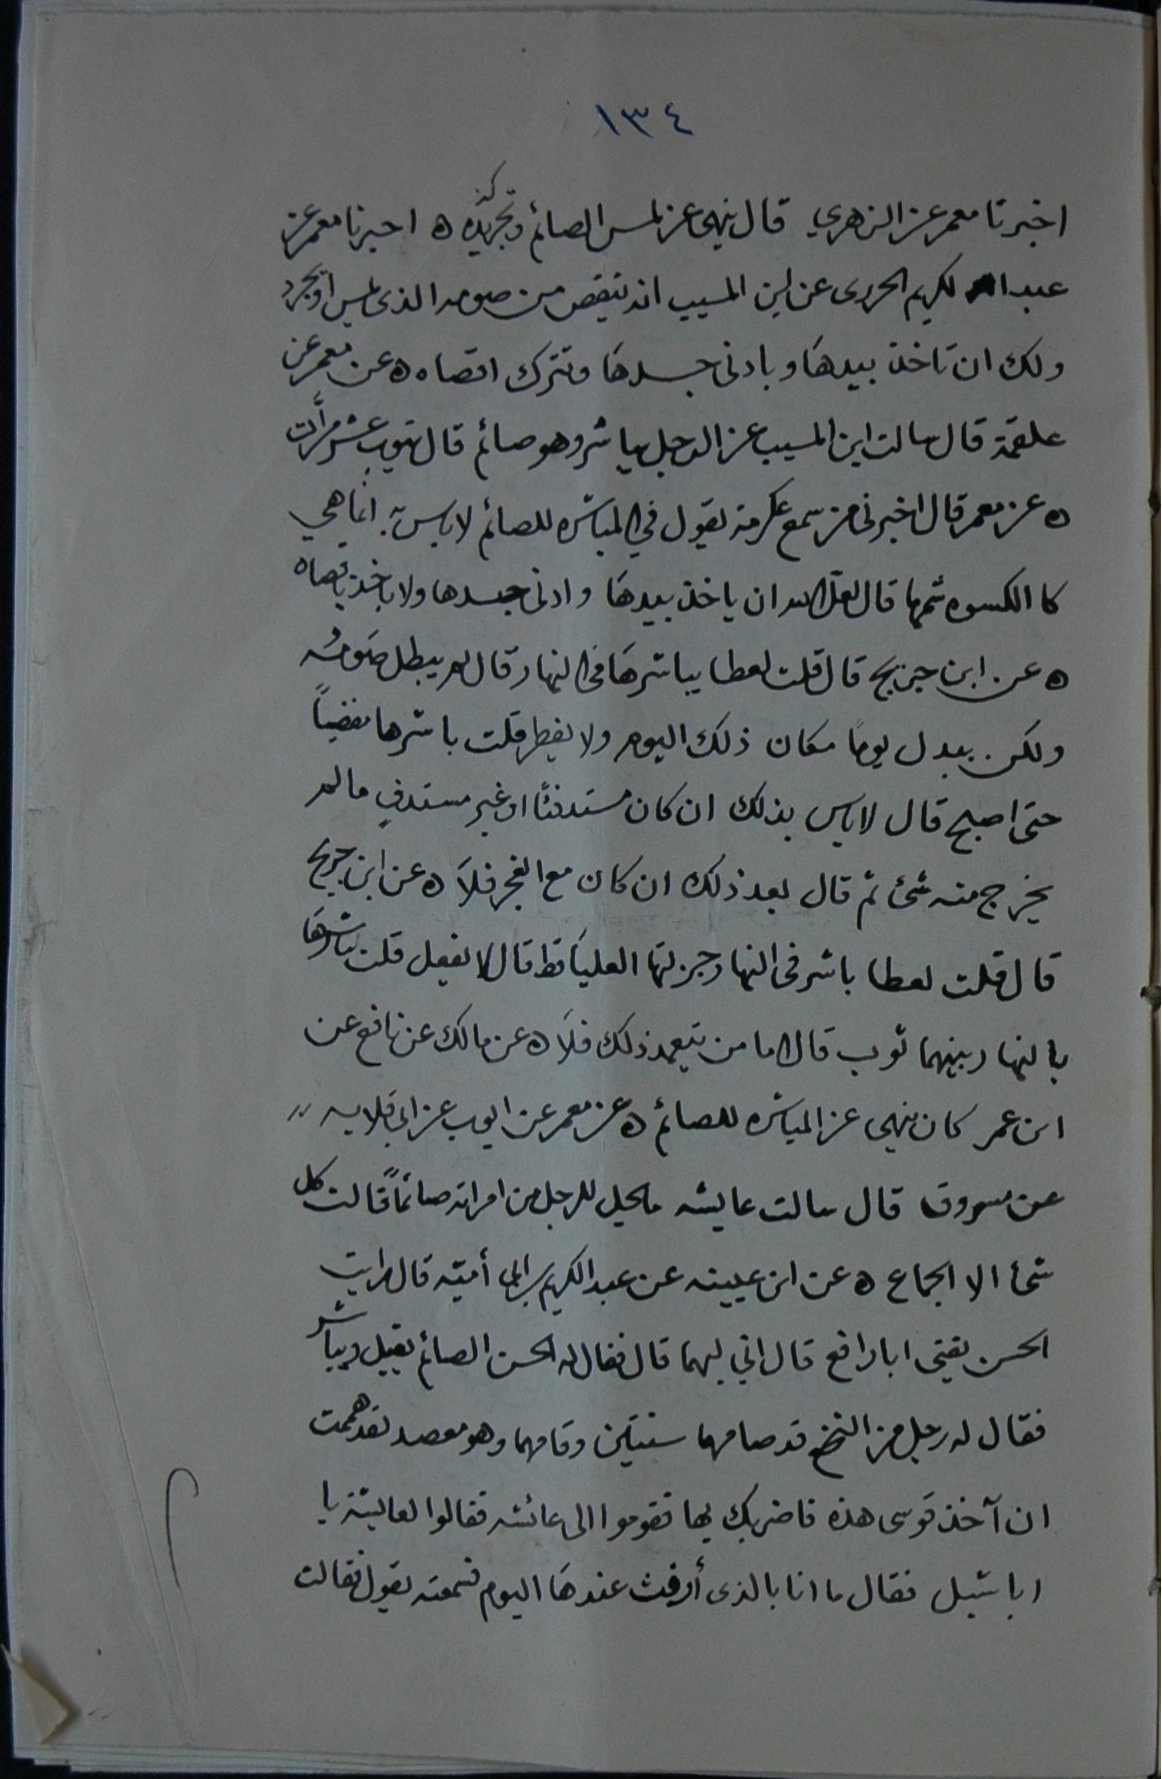 ١٣٤
اخبرنا معمر عن الزهري قال ينهى عن لمس الصائم وتجريده ٥ اخبرنا معمر عن
عبد الكريم الجزرى عن ابن المسيب انه ينقص من صومه الذى يلمس او يجرد
ولك ان تاخذ بيدها وبادنى جسدها وتترك اقصاه ٥ عن معمر عن
علقمة قال سالت ابن المسيب عن الرجل يباشر وهو صائم قال يتوب عشر مرات
٥ عن معمر قال اخبرنى من سمع عكرمة يقول في المباشره للصائم لاباس به انما هي
كا الكسره شمها قال ان ياخذ بيدها وادنى جسدها ولا ياخذ باقصاه
٥ عن ابن جريج قال قلت لعطا يباشرها فى النهار قال لم يبطل صومه
ولكن يبدل يوماً مكان ذلك اليوم ولا يفطر قلت باشرها مفضياً
حتى اصبح قال لاباس بذلك ان كان مستدفئا او غير مستدفي ما لم
يخرج منه شئ ثم قال بعد ذلك ان كان مع الفجر فلا ٥ عن ابن جريج
قال قلت لعطا باشر فى النهار جزلتها العليا قط قال لا يفعل قلت يباشرها
بالنهار بينهما ثوب قال اما من يتعمد ذلك فلا ٥ عن مالك عن نافع عن
ابن عمر كان ينهى عن المباشره للصائم ٥ عن معمر عن ايوب عن ابي قلابه
عن مسروق قال سالت عايشه مايحل للرجل من امراته صائماً قالت كل
شئ الا الجماع ٥ عن ابن عيينه عن عبد الكريم ابى أميّه قال رايت
الحسن يفتى ابا رافع قال اني لبهما قال فقال له الحسن الصائم يقبل ويباشر
فقال له رجل من النخع قد صامهما سنتين وقامهما وهو معضد لقد هممت
ان آخذ قوسى هذه فاضربك بها فقوموا الى عائشه فقالوا لعايشة يا
ابا شبل فقال ما انا بالذى أرفث عندها اليوم فسمعته يقول فقالت